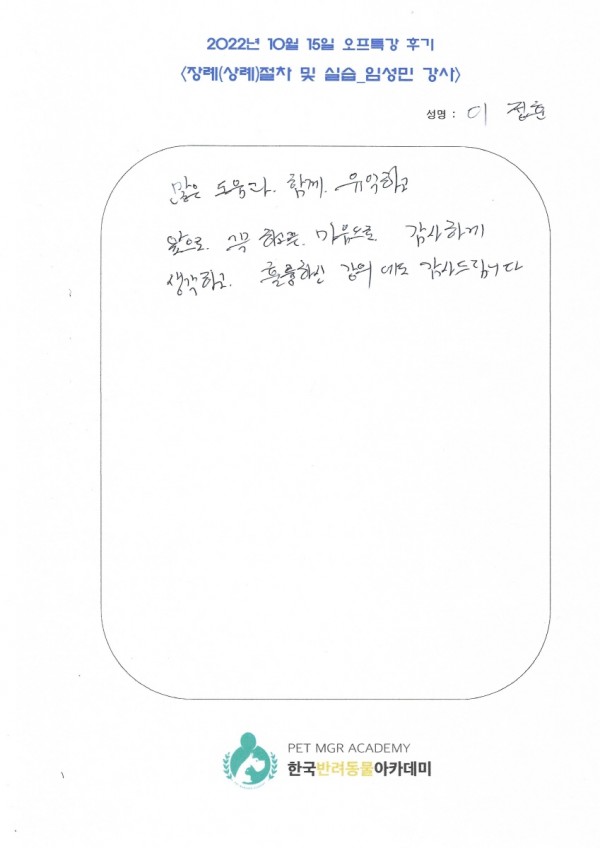 2022년 10월 15일 오프특강 후기
<장례(상례)절차 및 실습_임성민 강사>
성명 : 이
많은 도움과. 함께. 유익하고
앞으로. 꼭 하고픈. 마음으로 감사하게
생각하고. 훌륭하신 강의 에도 감사드립니다
PET MGR ACADEMY
한국반려동물아카데미